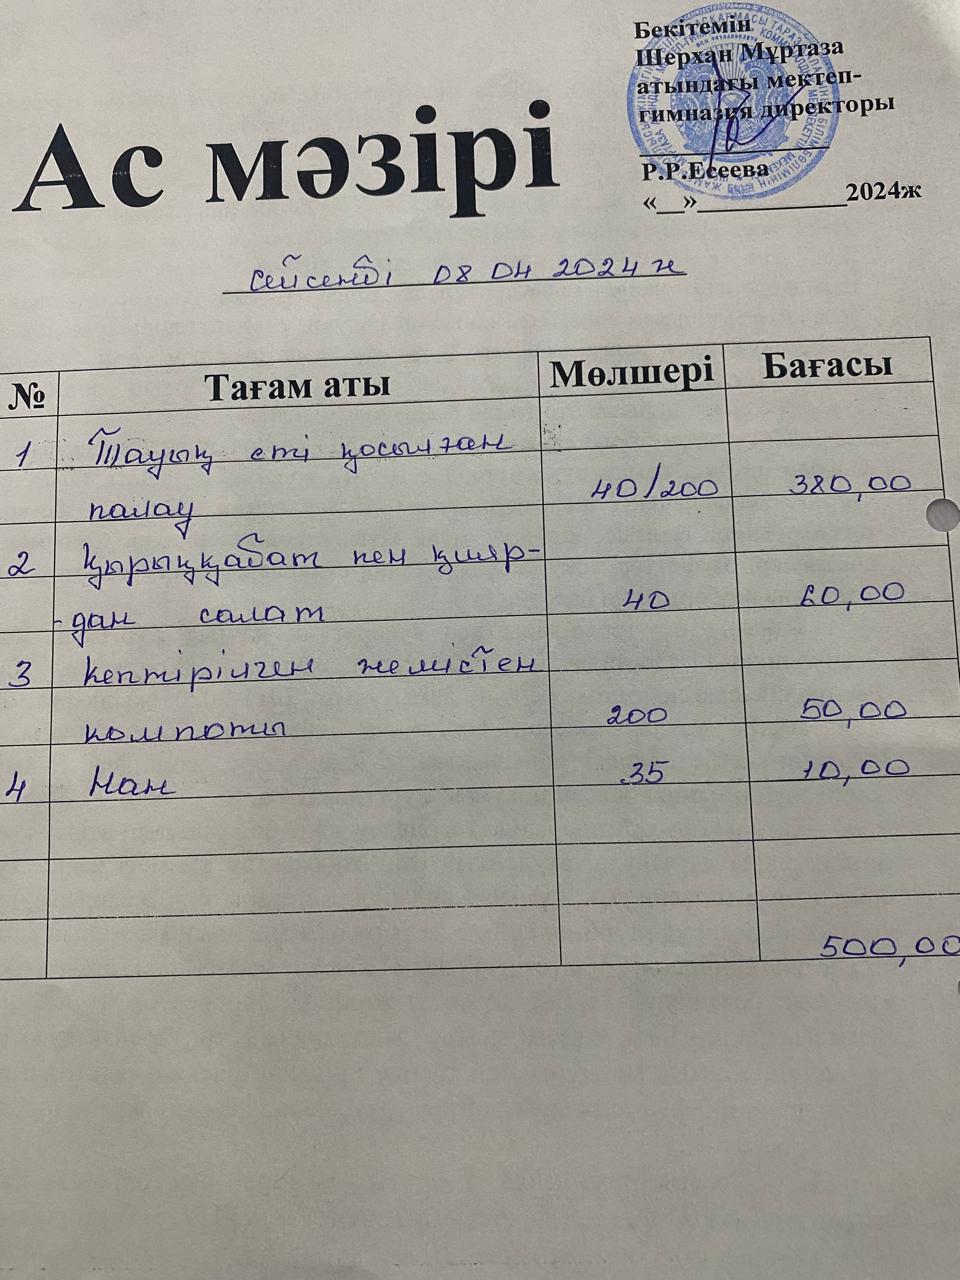 Бекітемін
Шерхан Мұртаза
атындағы мектеп-
гимназия директоры
Р.Р.Есеева
«__»___________2024ж
Ас мәзірі
сейсенбі 08 04 2024 ж
№ Тағам аты Мөлшері Бағасы
1 Тауық еті қосылған
палау 40/200 380,00
2 Қырыққабат пен қияр-
-дан салат 40 60,00
3 Кептірілген жемістен
компоты 200 50,00
4 Нан 35 10,00
500,00